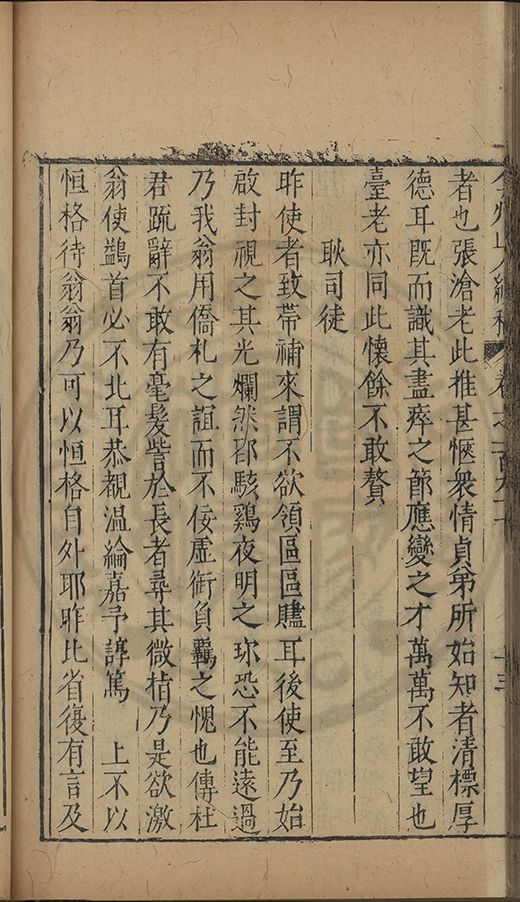 弇州山人續稿 卷之一百九十七 十三
者也張滄老此推甚愜衆情貞弟所始知者清標厚
德耳既而識其盡瘁之節應變之才萬萬不敢望也
臺老亦同此懷餘不敢贅
耿司徒
昨使者致帶補來謂不欲領區區贐耳後使至乃始
啟封視之其光爛然卽駭鷄夜明之珎恐不能遠過
乃我翁用僑札之誼而不佞虛衘負羈之愧也傳杜
君疏辭不敢有毫髮訾於長者尋其微㫖乃是欲激
翁使鷁首必不北耳恭覩溫綸嘉予諄篤 上不以
恒格待翁翁乃可以恒格自外耶昨比省復有言及